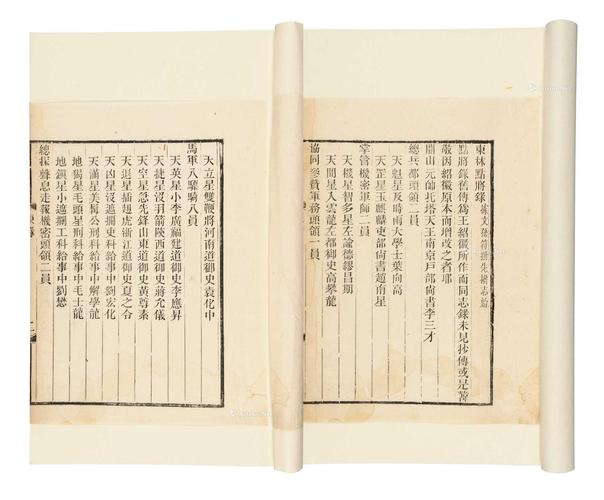 東林點將錄 據文孫符先撥志始
點將錄舊傳爲王紹徽所作而同志錄未見抄傳或是韓
敬因紹徽原本而增改之者耶
開山元帥托塔天王南京戶部尚書李三才
總兵都頭領二員
天魁星及時雨大學士葉向高
天罡星玉麒麟吏部尚書趙南星
掌管機密軍師二員
天機星智多星左諭德繆昌期
天閒星入雲龍左都御史高攀龍
協同參贊軍務頭領一員
天立星雙鞭將河南道御史袁化中
馬軍八驃騎八員
天英星小李廣福建道御史李應昇
天捷星沒羽箭陝西道御史蔣允儀
天空星急先鋒山東道御史黃尊素
天退星插翅虎浙江道御史夏之令
天凶星沒遮攔吏科給事中劉宏化
天滿星美髯公刑科給事中解學龍
地獨星毛頭星刑科給事中毛士龍
地鎭星小遮攔工科給事中劉懋
總探聲息走報機密頭領二員